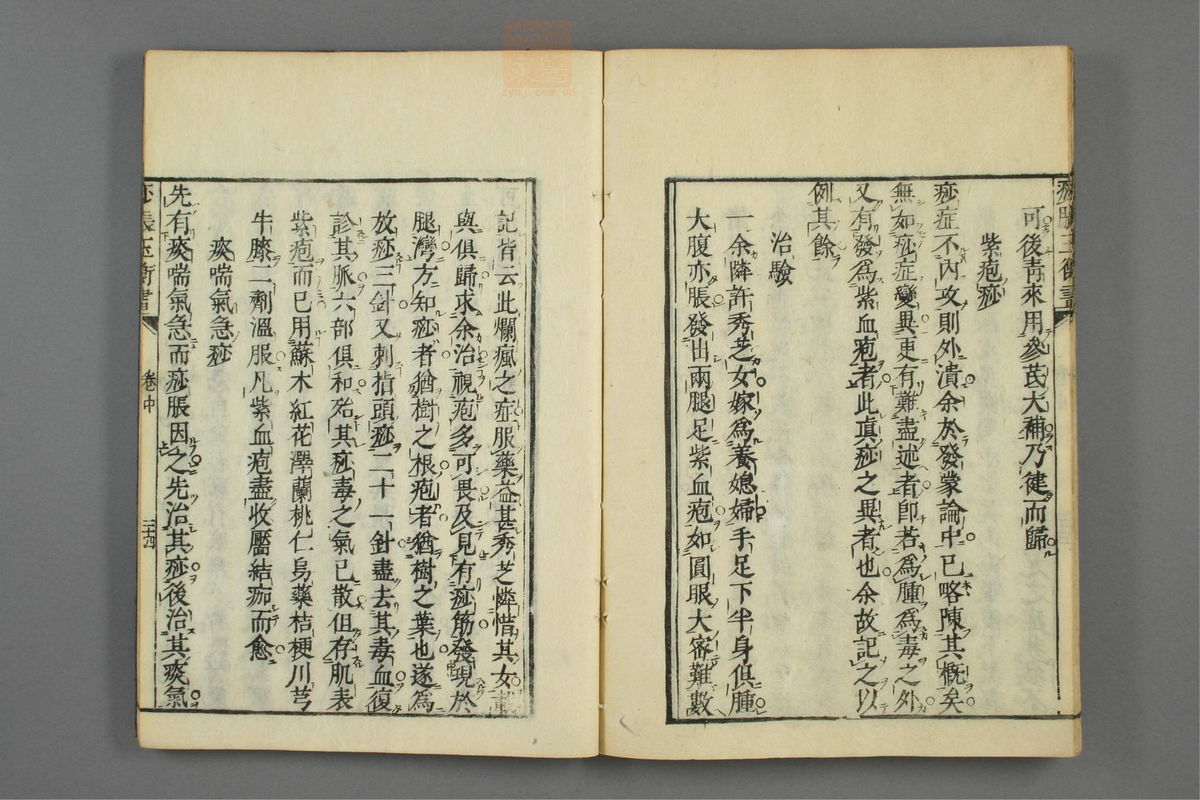 可後青來用參芪大補乃健而歸
紫疱痧
痧症不內攻則外潰余於發蒙論中已略陳其概矣
無如痧症變異更有難盡述者卽若爲腫爲毒之外
又有發爲紫血疱者此眞痧之異者也余故記之以
例其餘
治驗
一余隣許秀芝女嫁爲養媳婦手足下半身俱腫
大腹亦脹發出兩腿足紫血疱如圓眼大密難數
記皆云此爛瘋之症服藥益甚秀芝憐惜其女載
與俱歸求余治視疱多可畏及見有痧筋發現於
腿灣方知痧者猶樹之根疱者猶樹之葉也遂爲
放痧三針又刺指頭痧二十一針盡去其毒血復
診其脈六部俱和殆其痧毒之氣已散但存肌表
紫疱而已用蘇木紅花澤蘭桃仁烏藥桔梗川芎
牛膝二劑溫服凡紫血疱盡收靨結痂而愈
痰喘氣急痧
先有痰喘氣急而痧脹因之先治其痧後治其痰氣
痧脹玉衡書
卷中
三十四